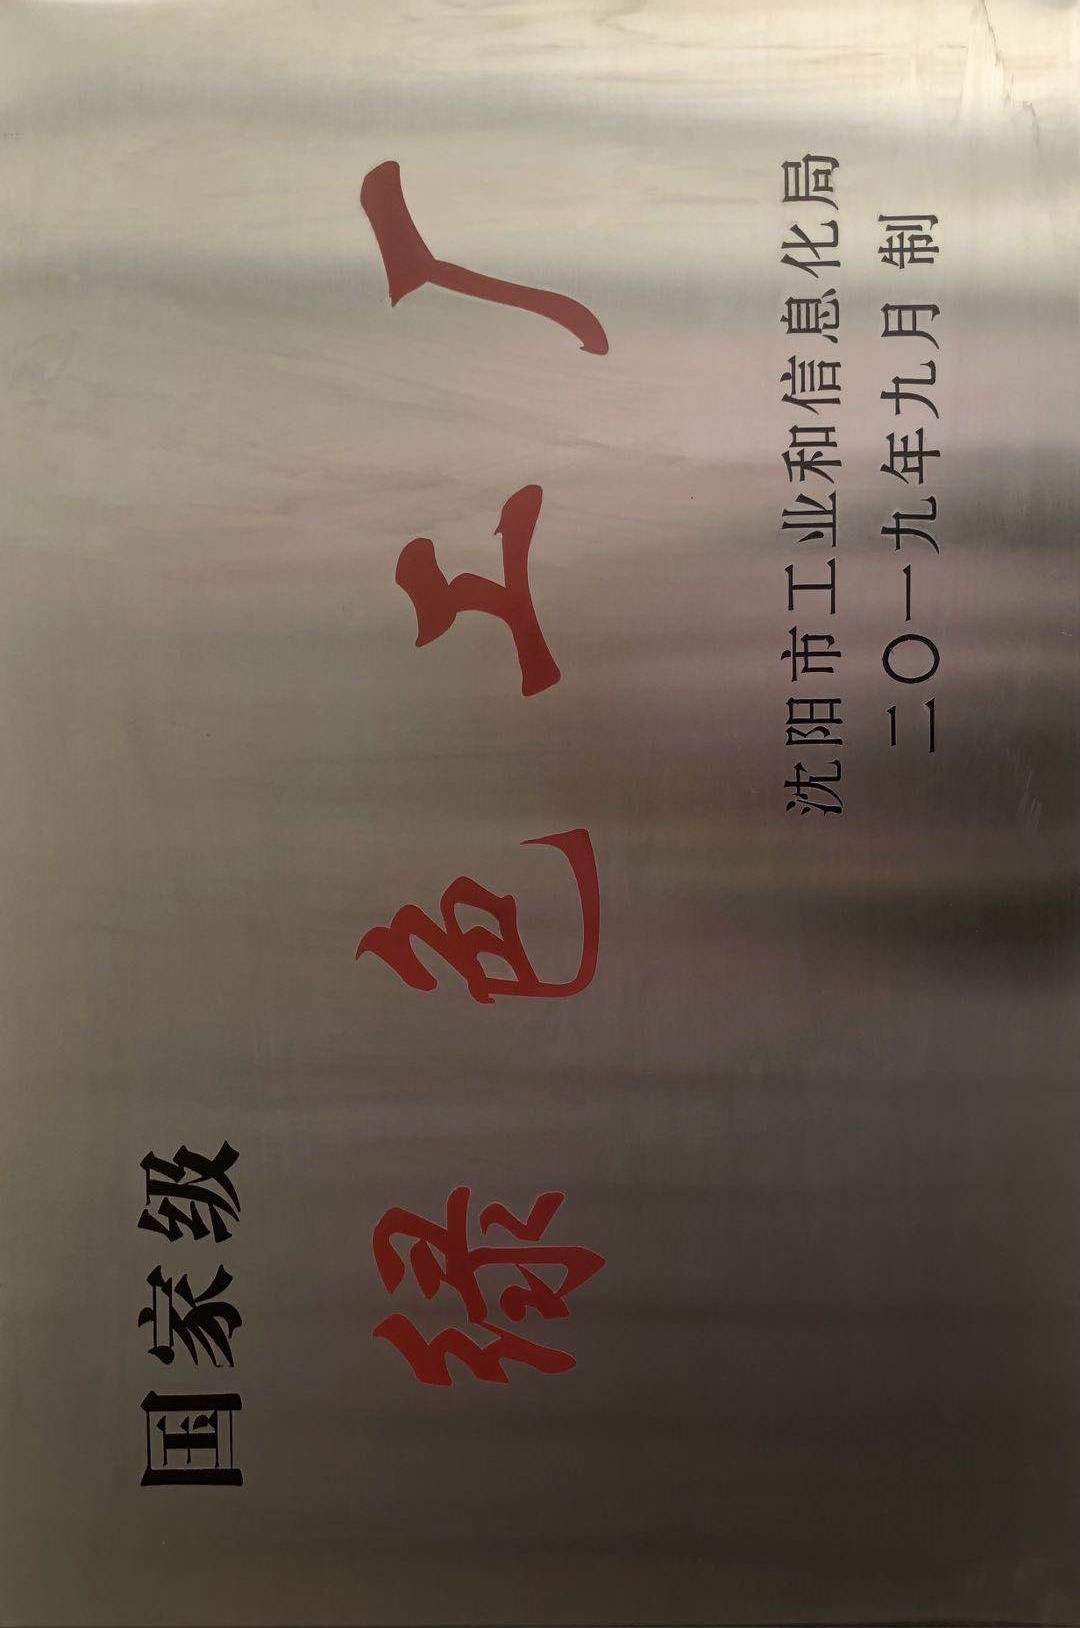 国家级
绿色工厂
沈阳市工业和信息化局
二〇一九年九月 制